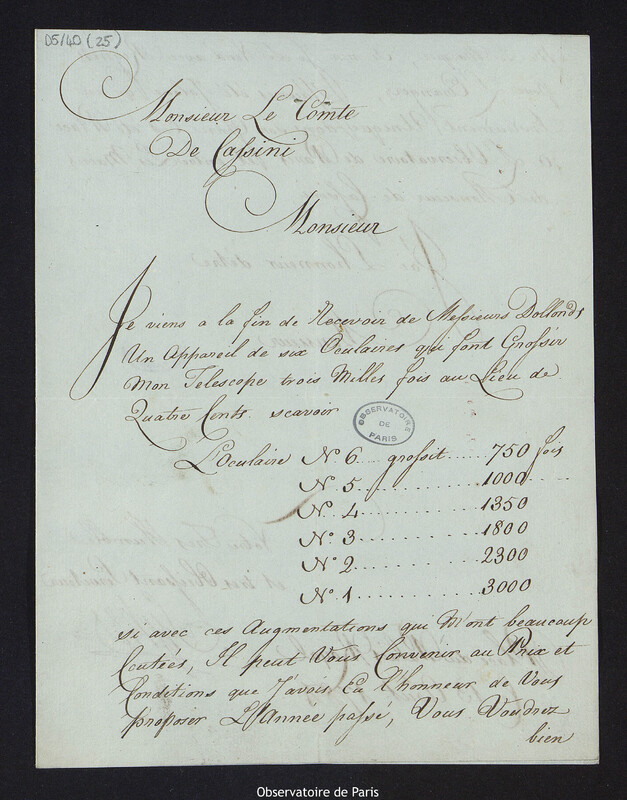 D5/40 (25)
Monsieur Le Comte
De Cassini
Monsieur
Je viens a la fin de Recevoir de Messieurs Dollonds
Un Appareil de six Oculaires qui font Grossir
Mon Telescope trois Milles fois au Lieu de
Quatre Cents. scavoir
OBSERVATOIRE
DE
PARIS
L'Oculaire Nº 6 .... grossit ...... 750 fois
Nº 5 .............. 1000 .....
Nº 4 .............. 1350
Nº 3 .............. 1800
Nº 2 .............. 2300
Nº 1 .............. 3000
si avec ces Augmentations qui M'ont beaucoup
Coutées, Il peut Vous Convenir au Prix et
Conditions que J'avois Eu l'honneur de Vous
proposer L'Annee passé, Vous Voudrez
bien
Observatoire de Paris